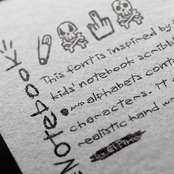 Notebook
This font is inspired by
kids' notebook scribbl
and alphabets cont
characters. it
realistic hand w
by